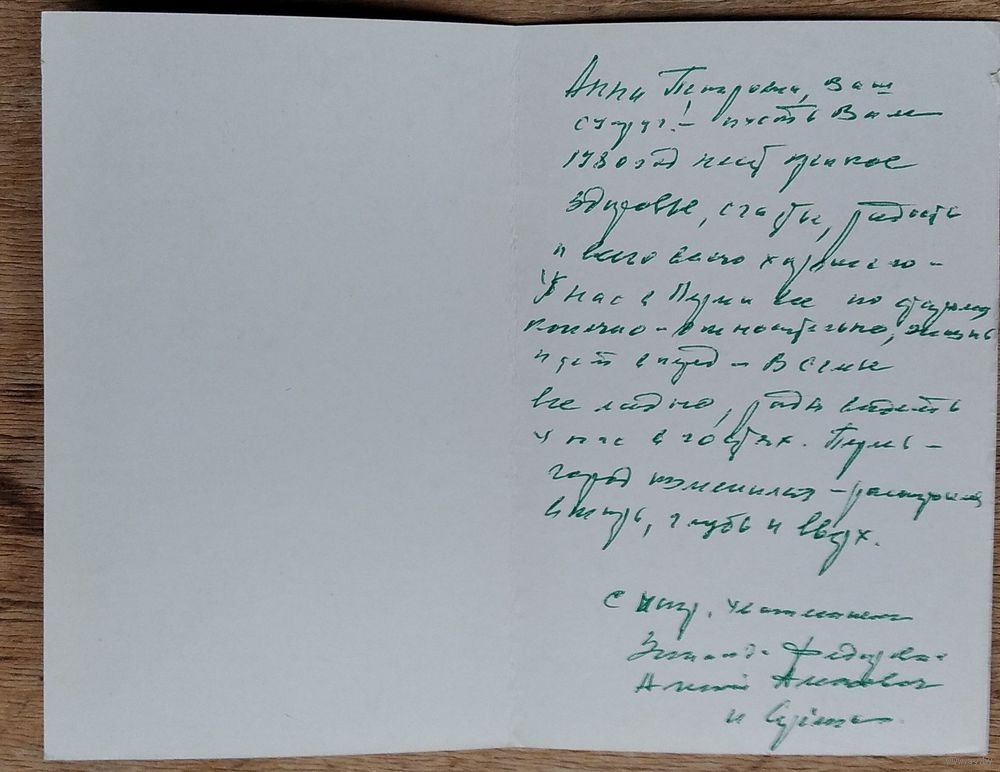 Анна Петровна, Ваш
супруг! – пусть Вам
1980 год несёт крепкое
здоровье, счастье, радость
и всего всего хорошего –
У нас в Перми все по старому
конечно – относительно, жизнь
идёт вперед – В семье
все ладно, рады видеть
у нас в гостях. Пермь –
город изменился – расширился
вширь, глубь и вверх.
С искр. уважением
Зинаида Федоровна
и